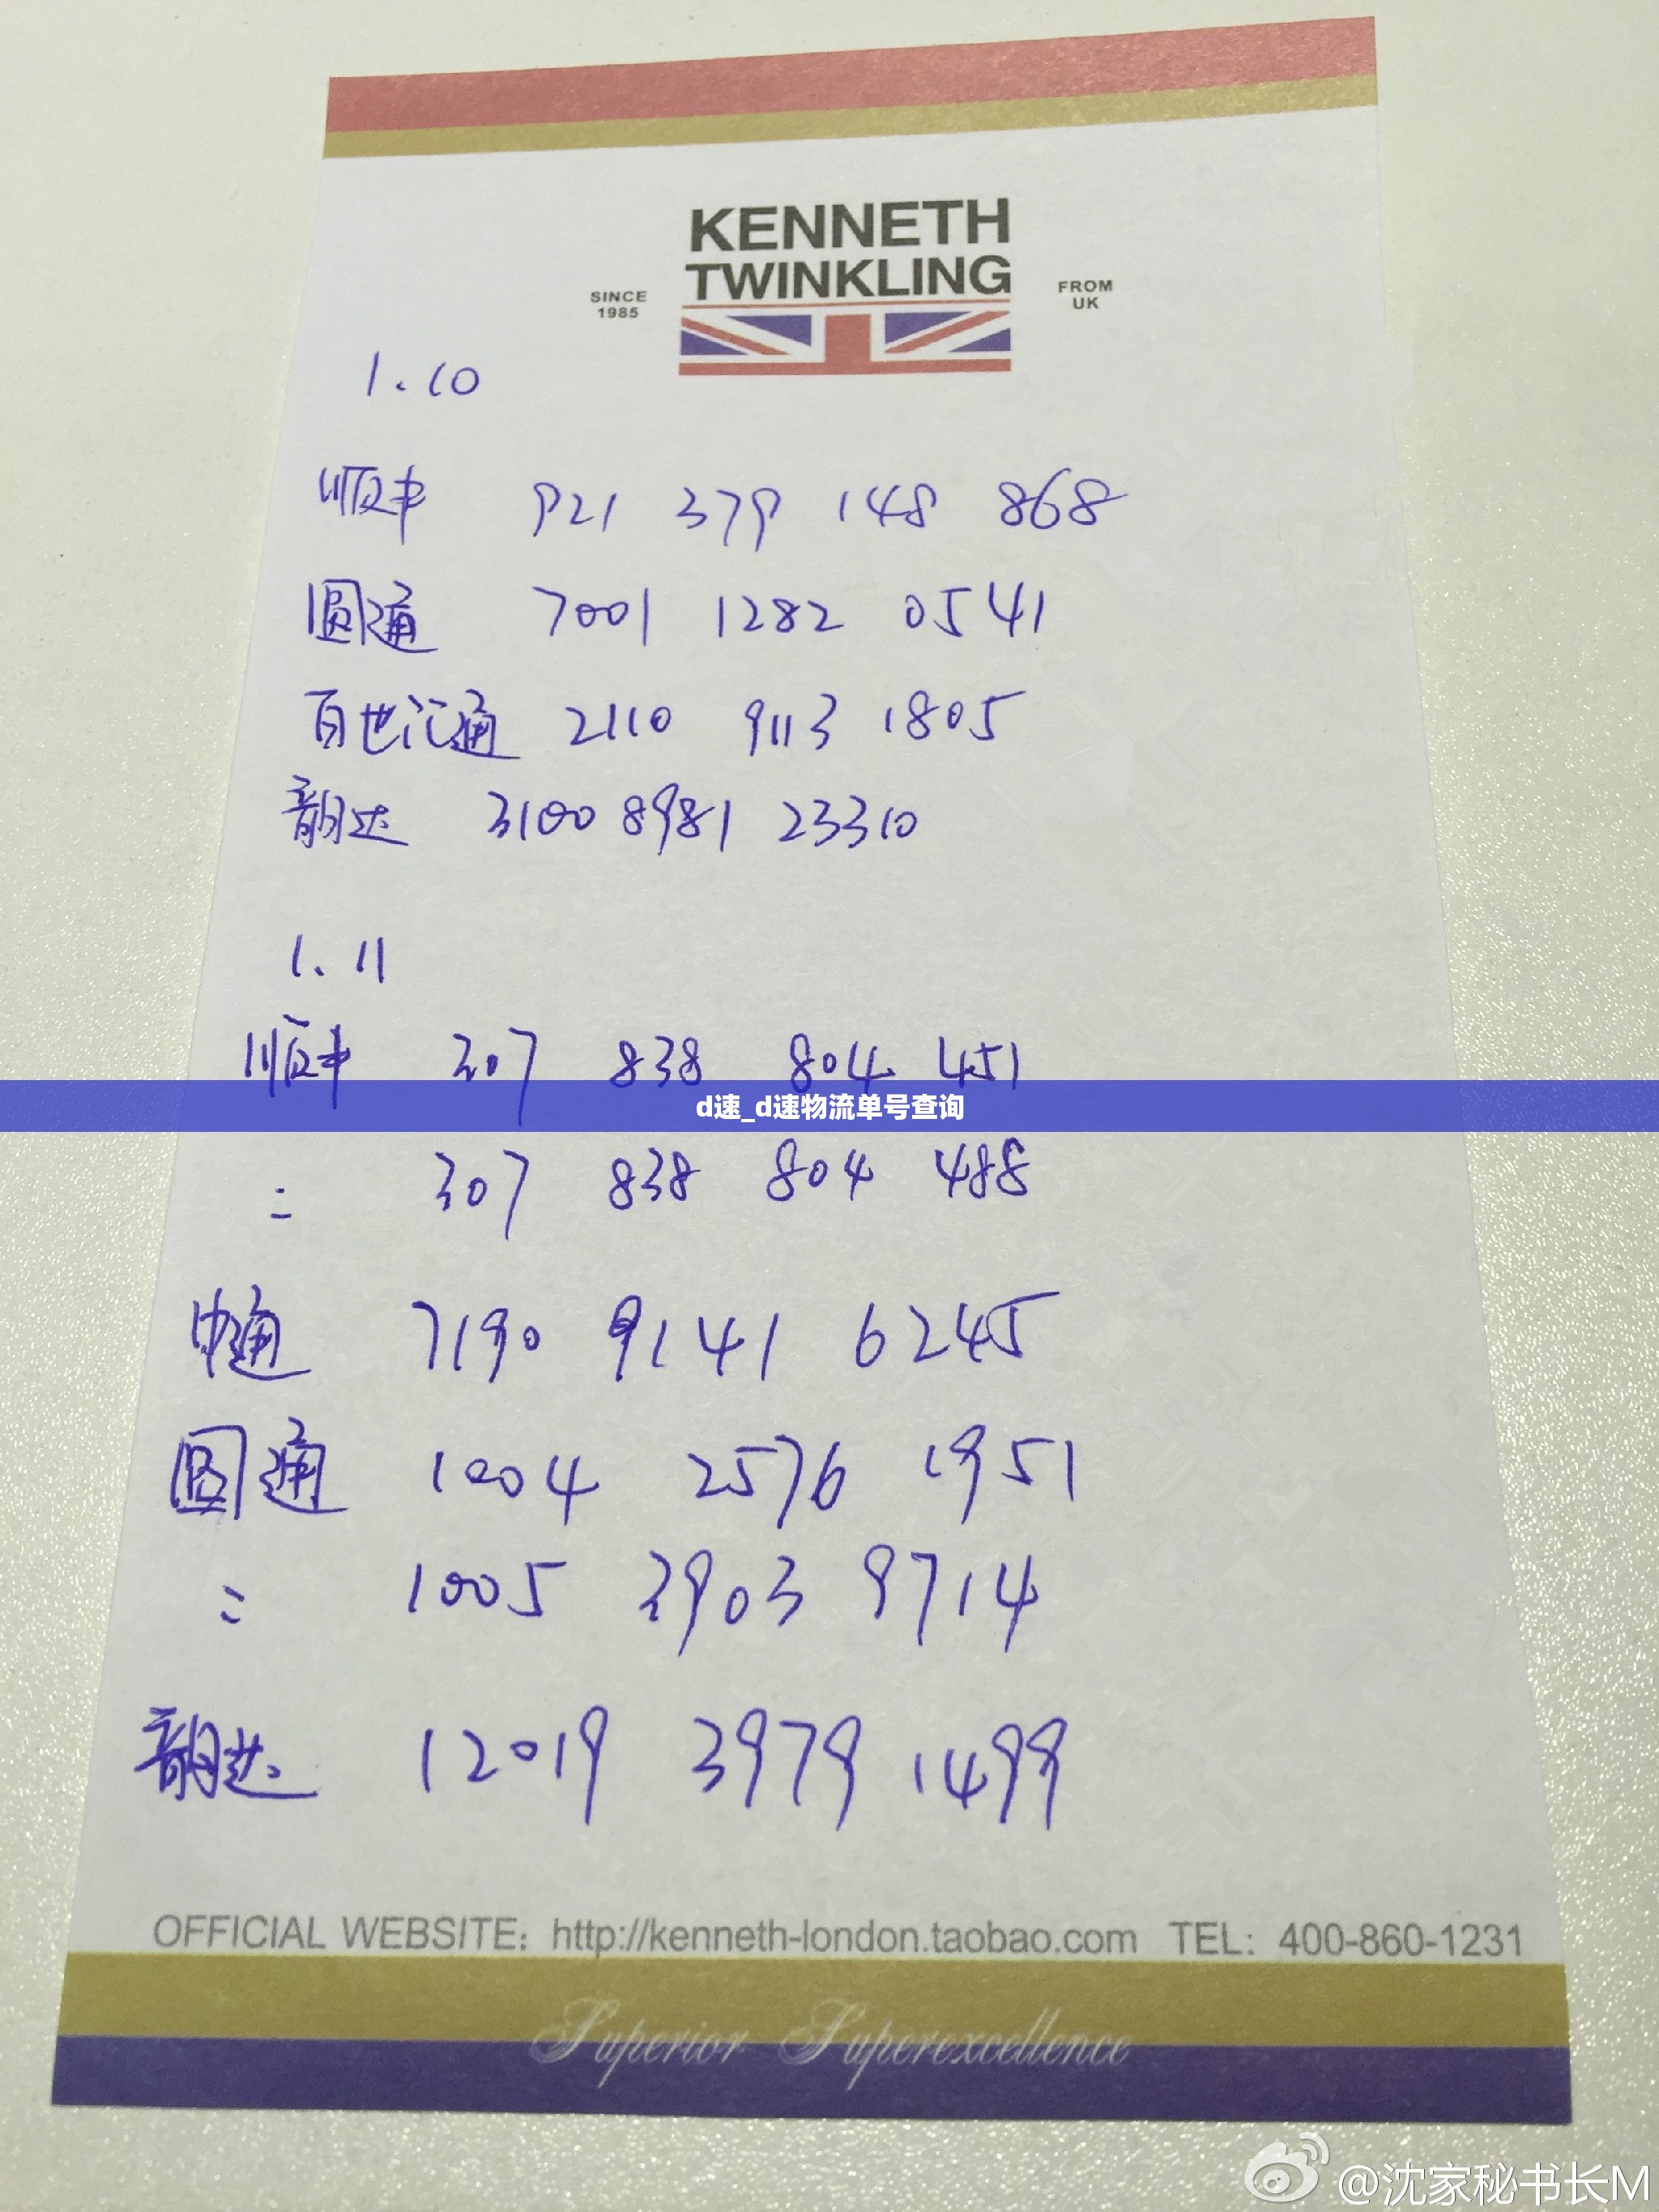 KENNETH
TWINKLING
SINCE
1985
FROM
UK
1.10
顺丰 921 379 148 868
圆通 7001 1282 0541
百世汇通 2110 9113 1805
韵达 3100 8981 23310
1.11
顺丰 307 838 804 451
d速_d速物流单号查询
= 307 838 804 488
中通 7190 9141 6245
圆通 1004 2576 1951
= 1005 3903 9714
韵达 12019 3979 1499
OFFICIAL WEBSITE: http://kenneth-london.taobao.com TEL: 400-860-1231
Superior Superexcellence
@沈家秘书长M